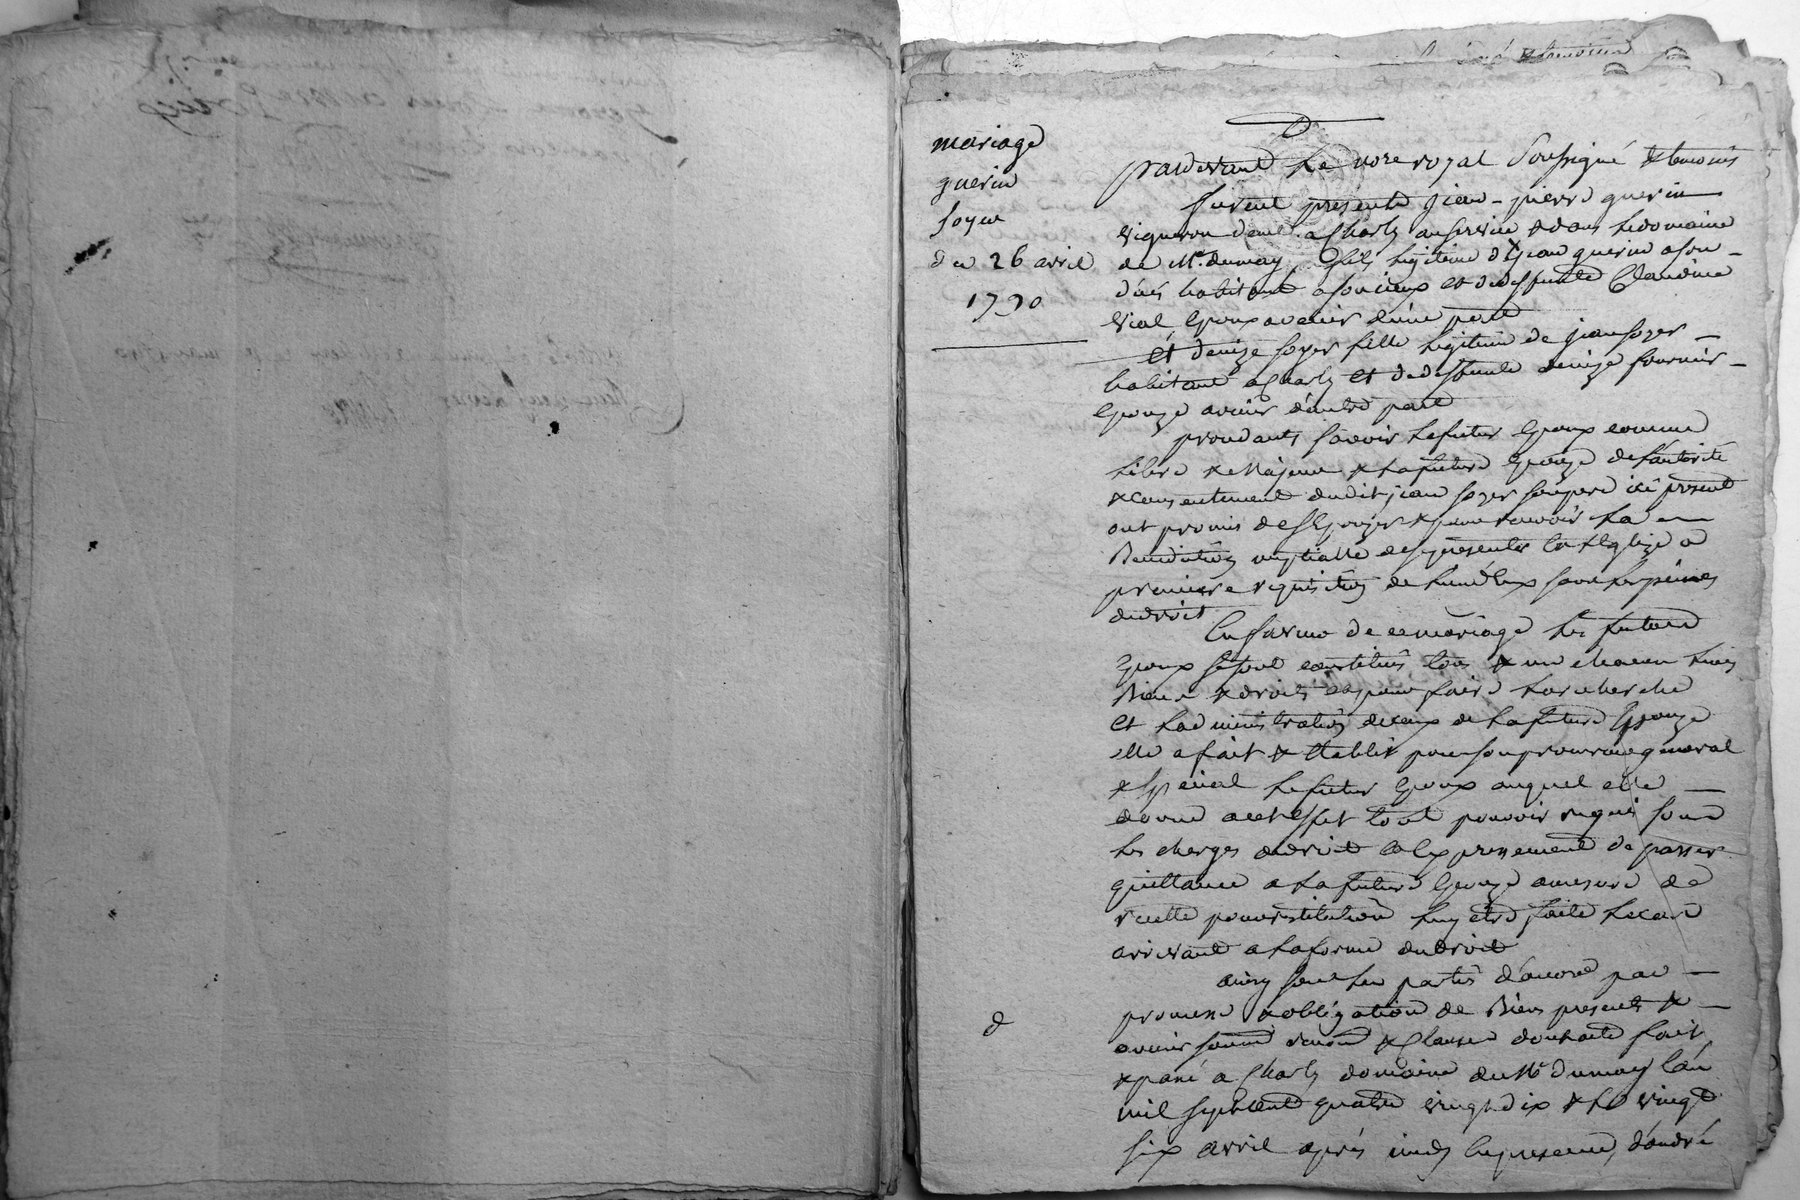 mariage
guerin
soyer
du 26 avril
1790
pardevant le nore royal soussigné & temoins
furent presents jean-pierre guerin
vigneron demt. a Charly au service & dans le domaine
de Mr. dumay, fils legitime de jean guerin
habitant a soucieux et de deffunte Claudine
vial, Epoux avenir d'une part
et denize soyer fille legitime de jean soyer
habitant a Charly et de deffunte denize fournier
Epouze avenir d'autre part
procedants sçavoir le futur Epoux comme
libre & Majeur & la future Epouze de l'autorité
& consentement dudit jean soyer son pere ici present
ont promis de s'Epouzer & pour recevoir la
Benediction nuptialle de se presenter en l'Eglize a
premiere requisition de l'un d'Eux sous les peines
du droit
En faveur de ce mariage les futurs
Epoux se sont constitués tous & un chacun leurs
Biens & droits et pour faire la recherche
et l'administration de ceux de la future Epouze
elle a fait & Etablit pour son procureur general
& special le futur Epoux auquel elle
donne a cet effet tout pouvoir requis sous
les charges du droit et Expressement de passer
quittance a la future Epouze a mesure de
recette pour restitution luy etre faite le cas
arrivant a la forme du droit
ainsy sont les parties d'accord par
promesse & obligation de Biens presents &
avenir soumis renon & Clauses dont acte fait
& passé a Charly domaine du Mr dumay l'an
mil sept cent quatre vingt dix & le vingt
six avril après midy En presence d'andré